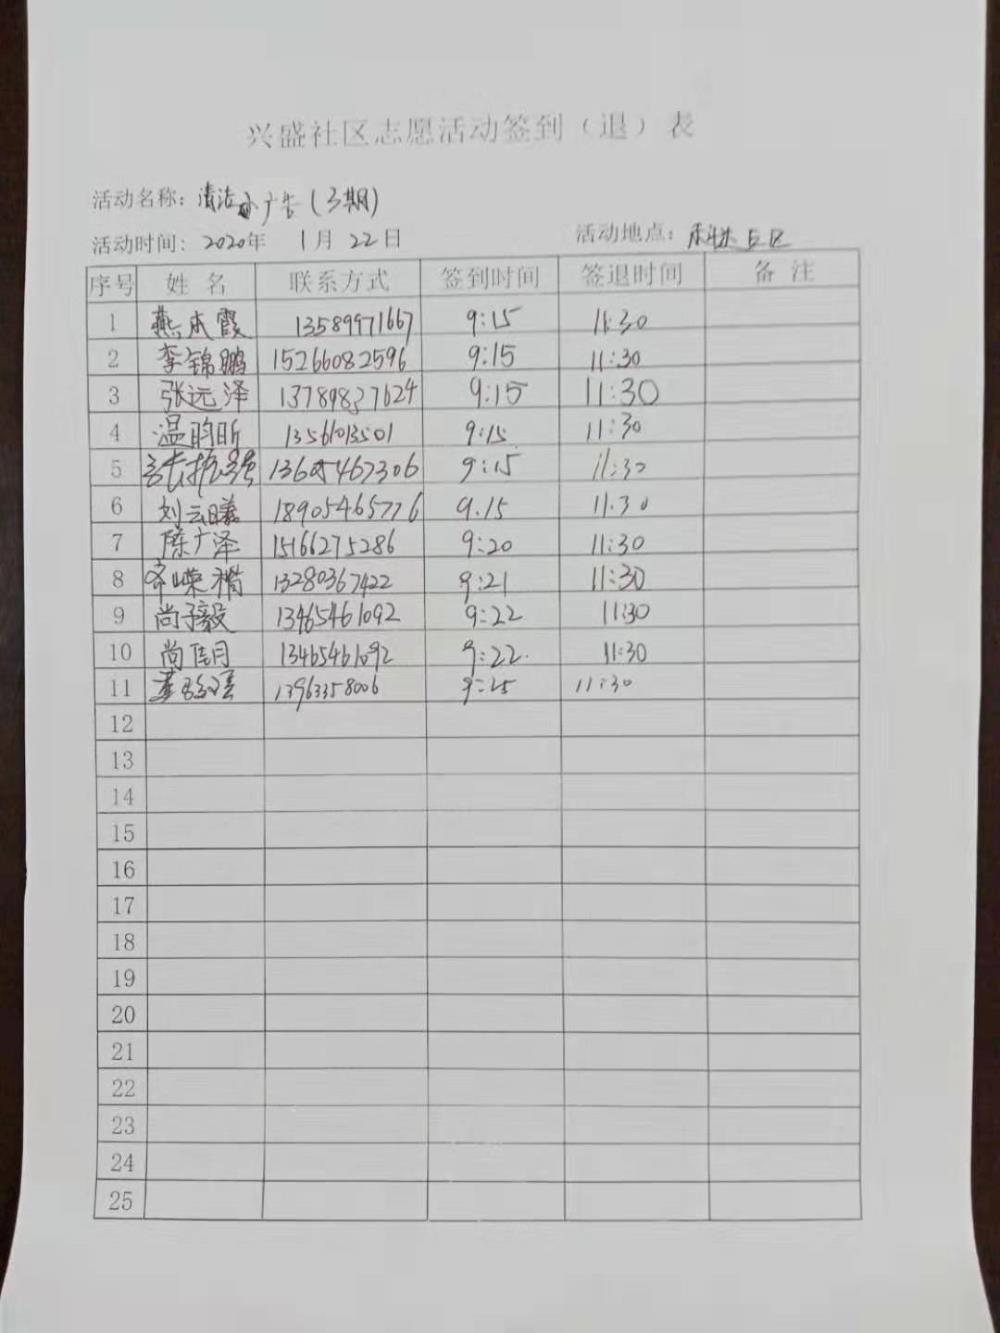 兴盛社区志愿活动签到（退）表
活动名称：清洁小广告(3期)
活动时间：2020年 1月22日 活动地点：
序号 姓名 联系方式 签到时间 签退时间 备注
1 燕本霞 13589971667 9:15 11:30
2 李锦鹏 15266082596 9:15 11:30
3 张远泽 13789837624 9:15 11:30
4 温昀昕 1356103501 9:15 11:30
5 13605467306 9:15 11:30
6 刘云曦 18905465776 9.15 11.30
7 陈广泽 15166275286 9:20 11:30
8 13280367422 9:21 11:30
9 尚子毅 13465461092 9:22 11:30
10 尚佳月 13465461092 9:22. 11:30
11 13963358006 9:25 11:30
12
13
14
15
16
17
18
19
20
21
22
23
24
25